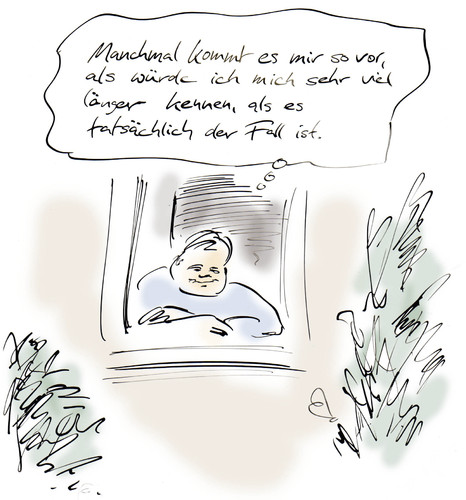 Manchmal kommt es mir so vor,
als würde ich mich sehr viel
länger kennen, als es
tatsächlich der Fall ist.